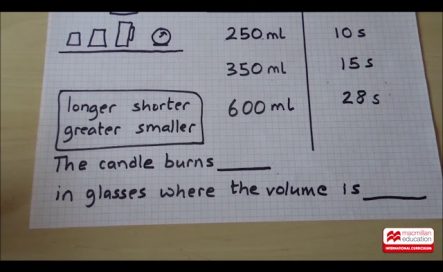 250 ml 10 s
350 ml 15 s
600 ml 28 s
longer shorter
greater smaller
The candle burns
in glasses where the volume is
macmillan
education
INTERNATIONAL CURRICULUM